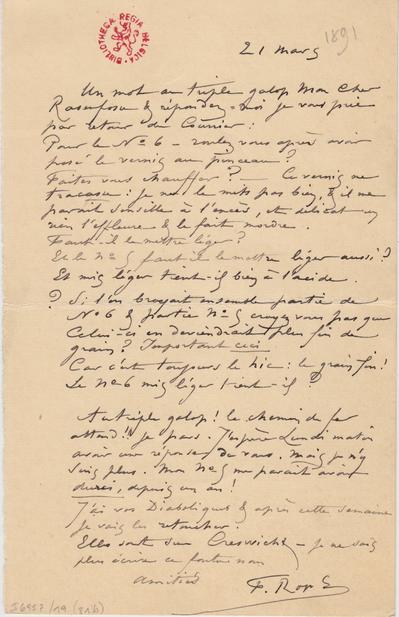 BIBLIOTHECA REGIA BELGICA
1891
21 mars
Un mot au triple galop Mon Cher
Rassenfosse & répondez-moi je vous prie
par retour du Courrier :
Pour le No 6 – voulez vous après avoir
posé le vernis au pinceau ?
Faites vous chauffer ? – Ce vernis me
tracasse : Je ne le mets pas bien, & il me
parait sensible à l'excès, et délicat un
rien l'effleure & le fait mordre.
Faut-il le mettre léger ?
Et le No 5 faut-il le mettre léger aussi ?
Et mis léger tient-il bien à l'acide.
? Si l'on broyait ensemble partie de
No 6 & partie No 5 croyez vous pas que
Celui-ci en deviendrait plus fin de
grain ? Important ceci
Car c'est toujours le hic : le grain fin !
Le No 6 mis léger tient-il ?
Au triple galop ! le chemin de fer
attend !! je pars. J'espère Lundi matin
avoir une réponse de vous. Mais je n'y
suis plus. Mon No 5 me parait avoir
durci, depuis un an !
J'ai vos Diaboliques & après cette semaine
Je vais les retoucher.
Elles sont sur – Je ne sais
plus écrire ce foutu nom
amitiés
F. Rops
S6957/19 (316)